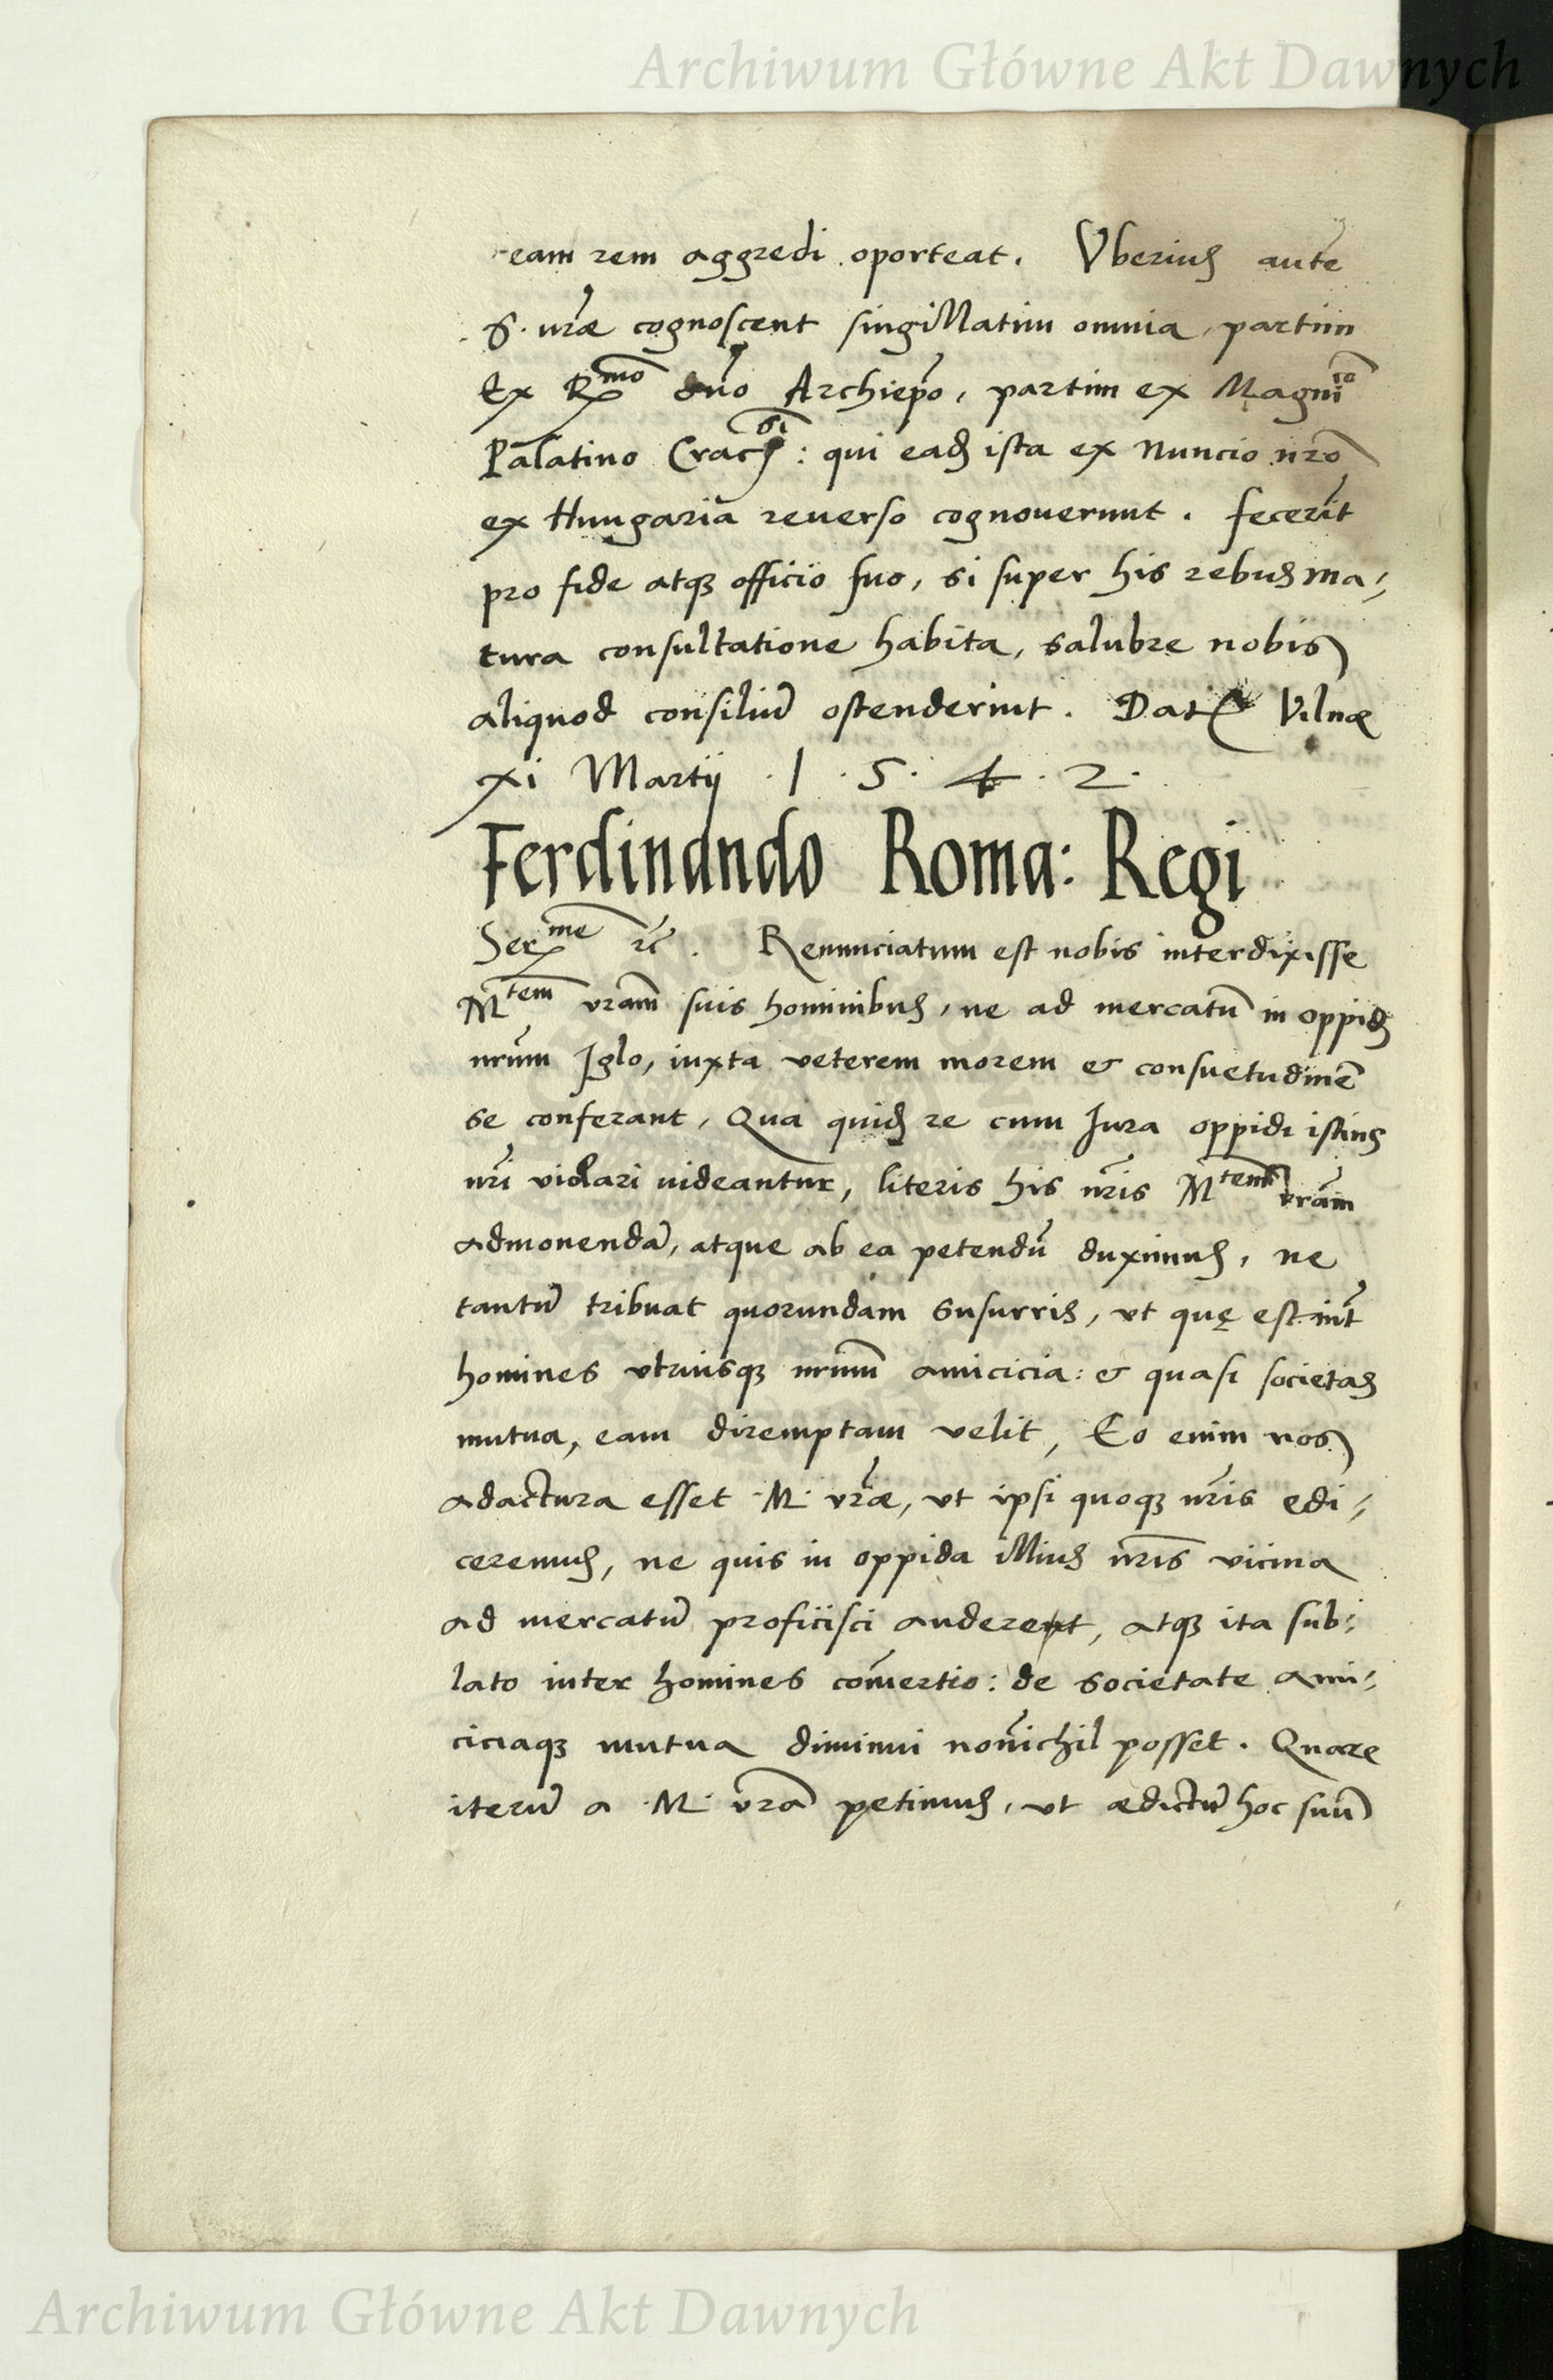 Archiwum Główne Akt Dawnych
eam rem aggredi oporteat. Vberius autē
S. vr̃ae cognoscent singillatim omnia, partim
Ex R^mo dn̄o Archiep̄o, partim ex Magni^co
Palatino Crac^si: qui eadē ista ex Nuncio nr̄o
ex Hungaria reuerso cognouerunt. fecerīt
pro fide atq3 officio suo, si super his rebus ma=
tura consultatione habita, salubre nobis
aliquod consiliū ostenderint. Dat Vilnæ
xi Martij .1.5.4.2.
Ferdinando Roma: Regi
Ser^me rc̄. Renunciatum est nobis interdixisse
M^tem vram̄ suis hominibus, ne ad mercatū in oppidū
nrūm Iglo, iuxta veterem morem et consuetudinē
se conferant, Qua quidē re cum Iura oppidi istius
nr̄i violari uideantur, literis his nr̄is M^tem vrām
admonendā, atque ab ea petendū duximus, ne
tantū tribuat quorundam susurris, vt quę est int̄
homines vtriusq3 nrūm amicicia: et quasi societas
mutua, eam diremptam velit, Eo enim nos
adactura esset M. vr̃ae, vt ipsi quoq3 nr̄is edi=
ceremus, ne quis in oppida illius nr̄is vicina
ad mercatū proficisci auderet, atq3 ita sub=
lato inter homines com̄ertio: de societate ami=
ciciaq3 mutua diminui non̄ichil posset. Quare
iterū a M. vrā petimus, vt ædictū hoc suū
Archiwum Główne Akt Dawnych